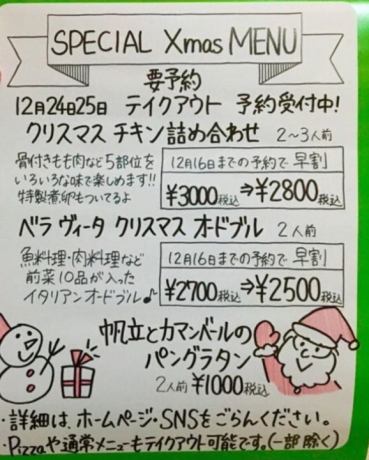 SPECIAL Xmas MENU
要予約
12月24日25日 テイクアウト 予約受付中!
クリスマス チキン詰め合わせ 2〜3人前
骨付きもも肉など5部位を
いろいろな味で楽しめます!!
特製煮卵もついてるよ
12月16日までの予約で 早割
¥3000税込⇒¥2800税込
ベラ ヴィータ クリスマス オードブル 2人前
魚料理・肉料理など
前菜10品が入った
イタリアンオードブル♪
12月16日までの予約で 早割
¥2700税込⇒¥2500税込
帆立とカマンベールの
パングラタン
2人前 ¥1000税込
・詳細は、ホームページ・SNSをごらんください。
・Pizzaや通常メニューもテイクアウト可能です。(一部除く)